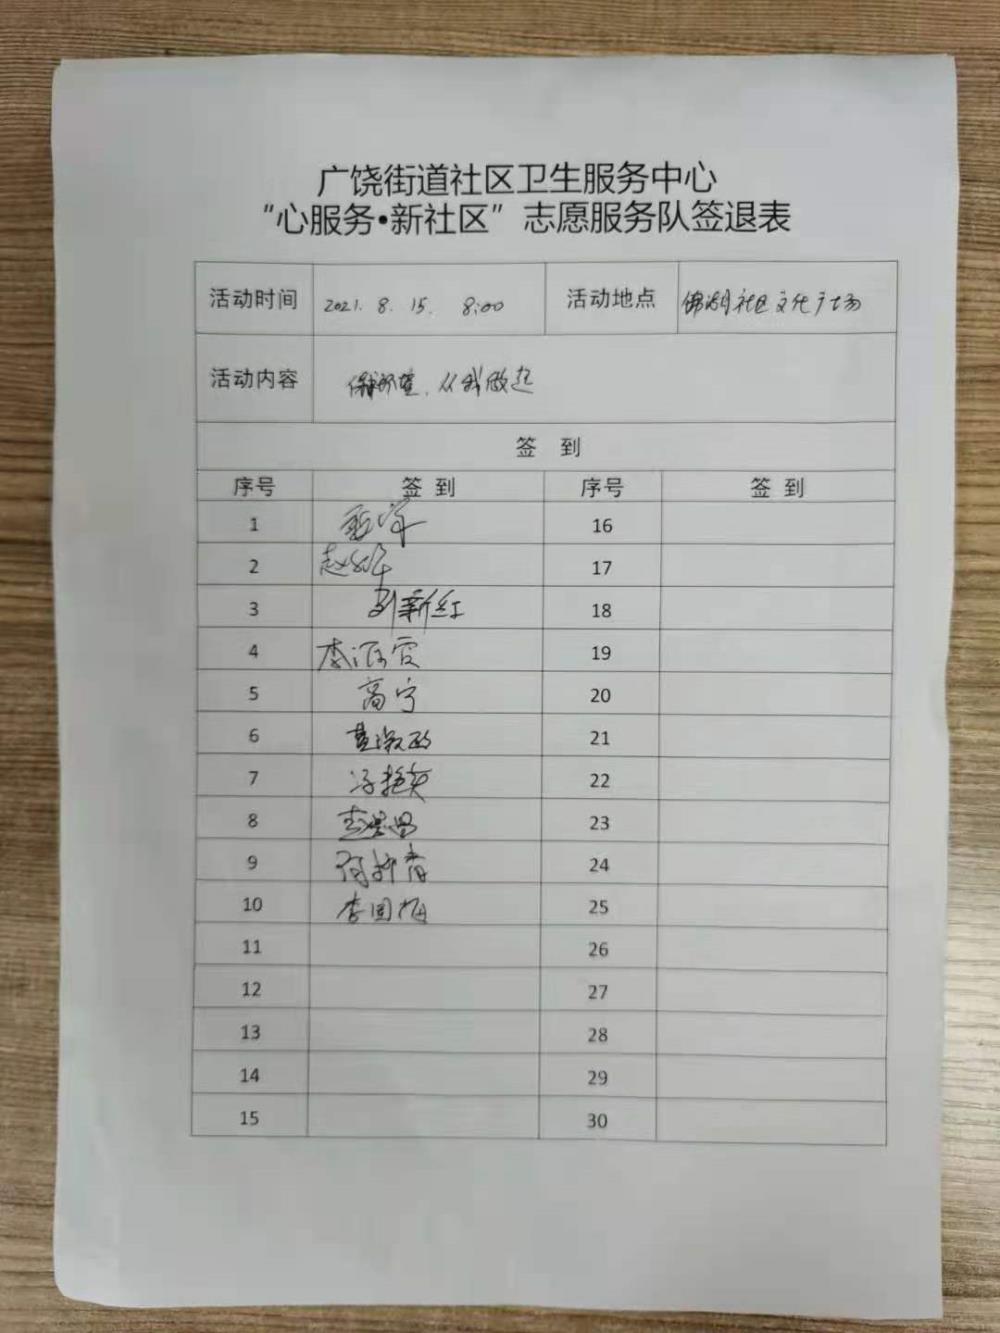 广饶街道社区卫生服务中心
“心服务•新社区”志愿服务队签退表
活动时间 2021. 8. 15. 8:00 活动地点 社区文化广场
活动内容 保护环境、从我做起
签 到
序号 签 到 序号 签 到
1 16
2 赵 17
3 刘新红 18
4 李 霞 19
5 高宁 20
6 21
7 冯艳 22
8 23
9 24
10 李国梅 25
11 26
12 27
13 28
14 29
15 30